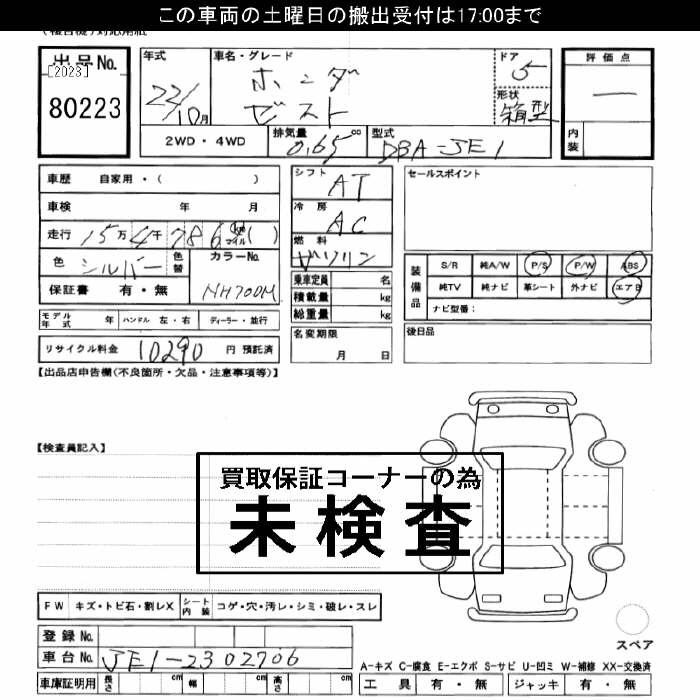 この車両の土曜日の搬出受付は17:00まで
出品No.
[2023]
80223
年式
22/10月
車名・グレード
ホンダ
ゼスト
ドア
5
形状
箱型
評価点
―
内装
2WD・4WD
排気量
0.65 cc
型式
DBA-JE1
車歴 自家用・( )
車検 年 月
走行 15万4千786 km マイル ( )
色 シルバー 色替
カラーNo.
NH700M
保証書 有・無
シフト
AT
冷房
AC
燃料
ガソリン
乗車定員 名
積載量 kg
総重量 kg
セールスポイント
装備品
S/R 純A/W P/S P/W ABS
純TV 純ナビ 革シート 外ナビ エアB
ナビ型番:
モデル年式 年 ハンドル 左・右 ディーラー・並行
リサイクル料金 10290 円 預託済
名変期限
月 日
後日品
【出品店申告欄(不良箇所・欠品・注意事項等)】
【検査員記入】
買取保証コーナーの為
未検査
FW キズ・トビ石・割レX シート内装 コゲ・穴・汚レ・シミ・破レ・スレ
登録No.
車台No. JE1-2302706
車庫証明用 長さ cm 幅 cm 高さ cm
スペア
A-キズ C-腐食 E-エクボ S-サビ U-凹ミ W-補修 XX-交換済
工具 有・無 ジャッキ 有・無